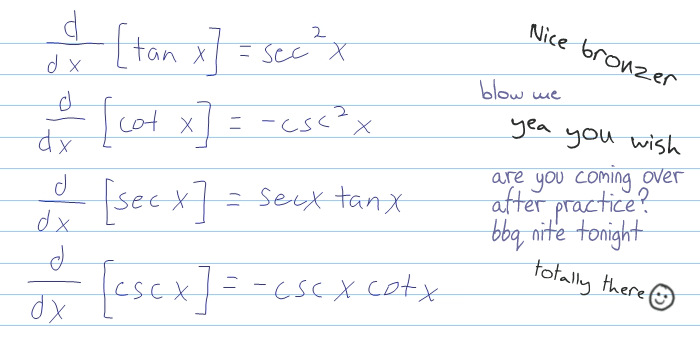 d/dx [tan x] = sec²x
d/dx [cot x] = -csc²x
d/dx [sec x] = secx tanx
d/dx [csc x] = -csc x cotx
Nice bronzer
blow me
yea you wish
are you coming over
after practice?
bbq nite tonight
totally there ☺